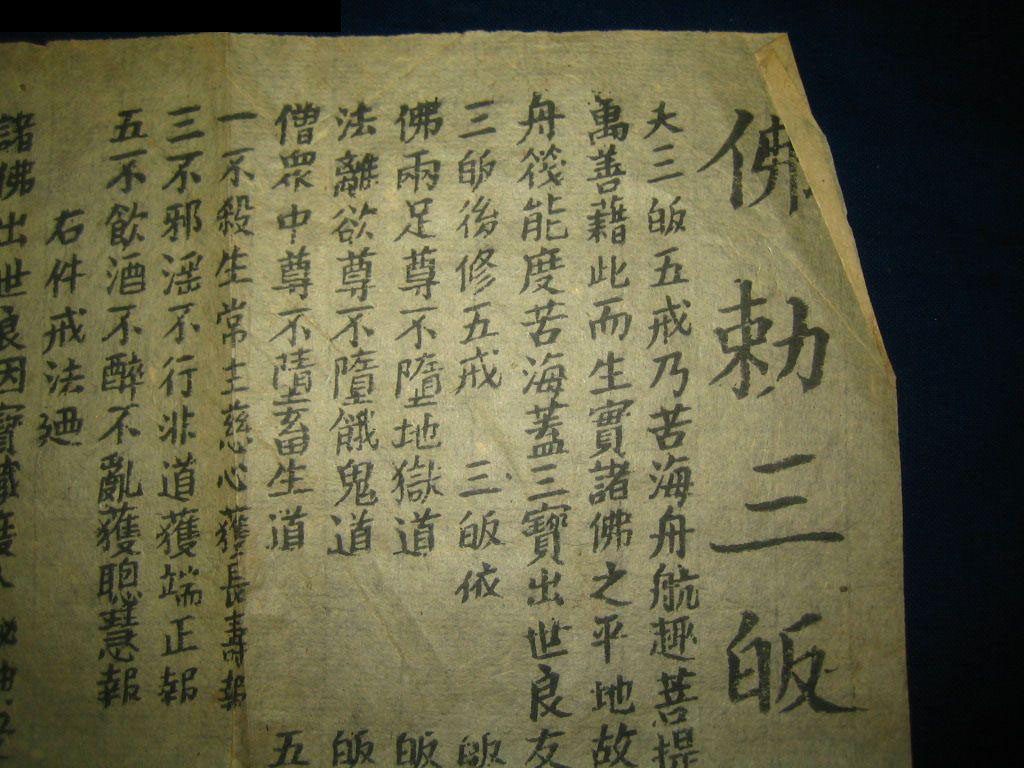 佛勅三皈
夫三皈五戒乃苦海舟航趣菩提
萬善藉此而生實諸佛之平地故
舟筏能度苦海蓋三寶出世良友
三皈後修五戒 三皈依 皈
佛兩足尊不墮地獄道 皈
法離欲尊不墮餓鬼道 皈
僧眾中尊不墮畜生道 五
一不殺生常主慈心獲長壽報
三不邪淫不行非道獲端正報
五不飲酒不醉不亂獲聰慧報
右件戒法迺
諸佛出世良因寶